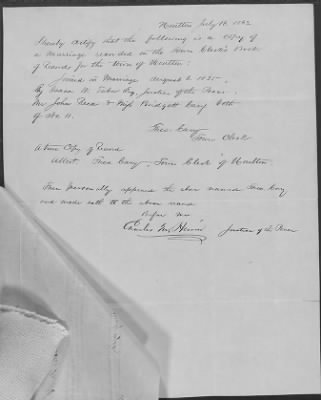 Houlton July 18, 1862
I hereby certify that the following is a copy of
a marriage recorded in the Town Clerk's Book
of Records for the town of Houlton:
Joined in Marriage August 2, 1835.
By Isaac W. Tabor Esq, Justice of the Peace.
Mr John Rea & Miss Bridgett Cary both
of No 11.
Theo. Cary
Town Clerk
A true Copy of Record
Attest, Theo Cary, Town Clerk of Houlton.
Then personally appeared the above named Theo Cary
and made oath to the above
Before me
Charles M. Justice of the Peace